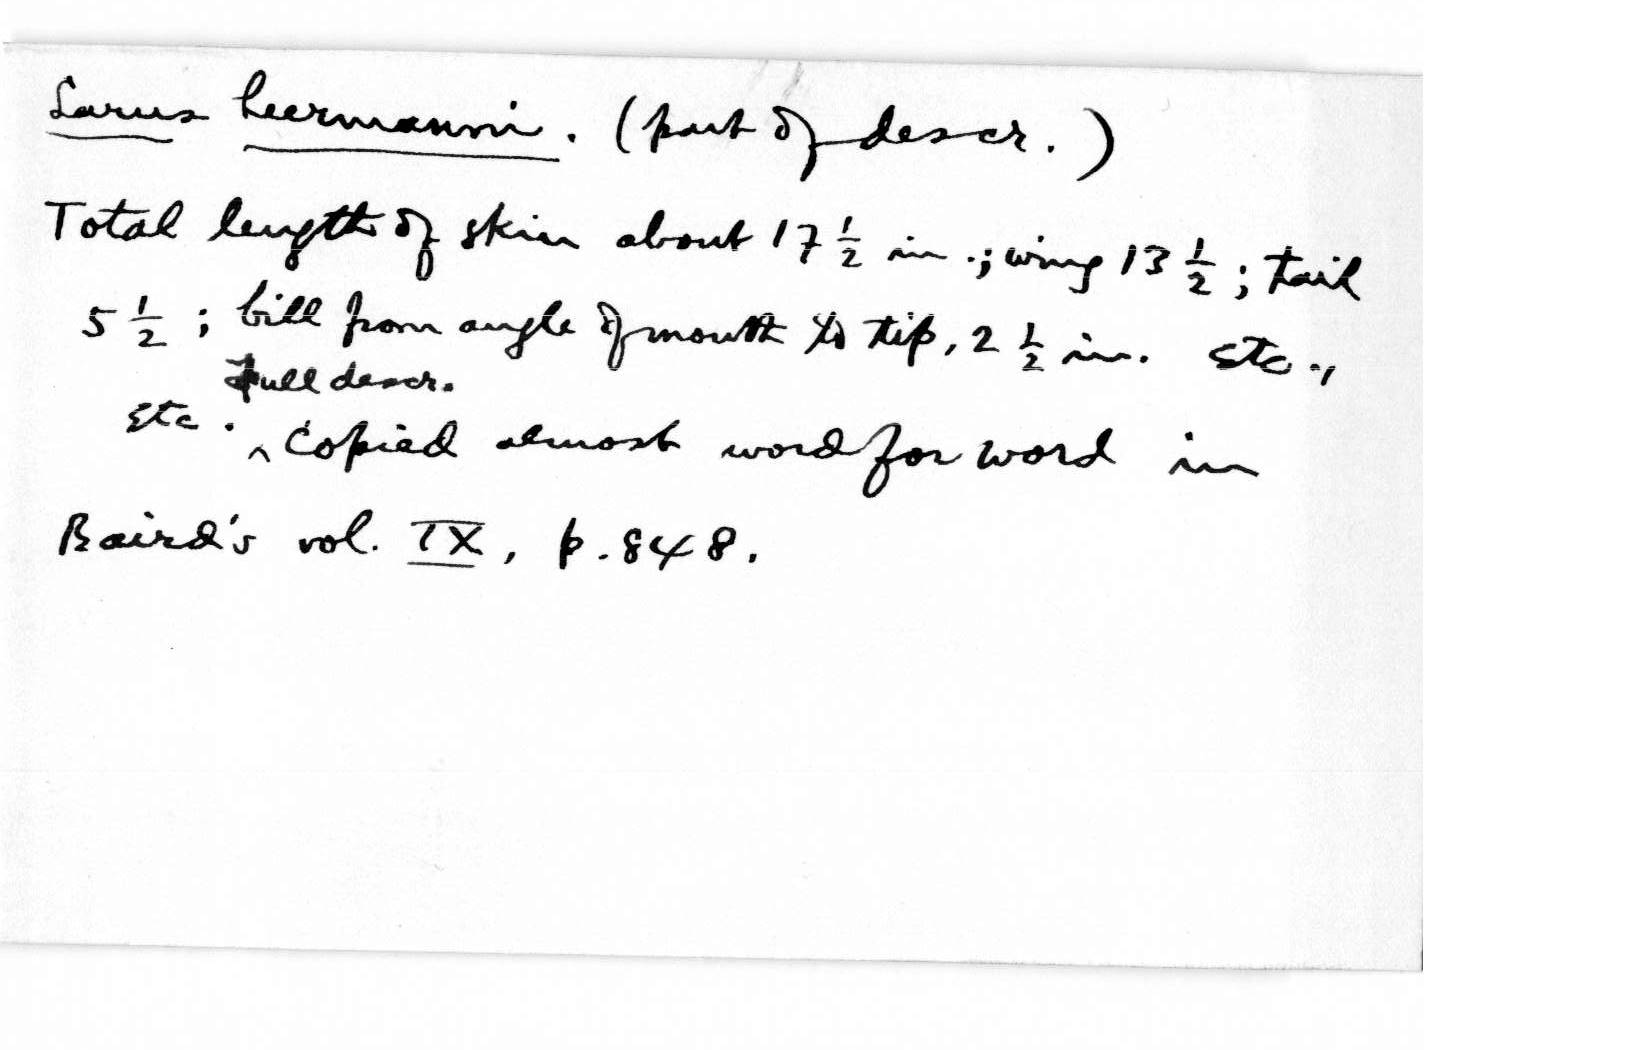 Larus heermanni. (part of descr.)
Total length of skin about 17 1/2 in.; wing 13 1/2; tail
5 1/2; bill from angle of mouth to tip, 2 1/2 in. etc.,
Full descr.
Etc. ^ Copied almost word for word in
Baird's vol. IX, p. 848.